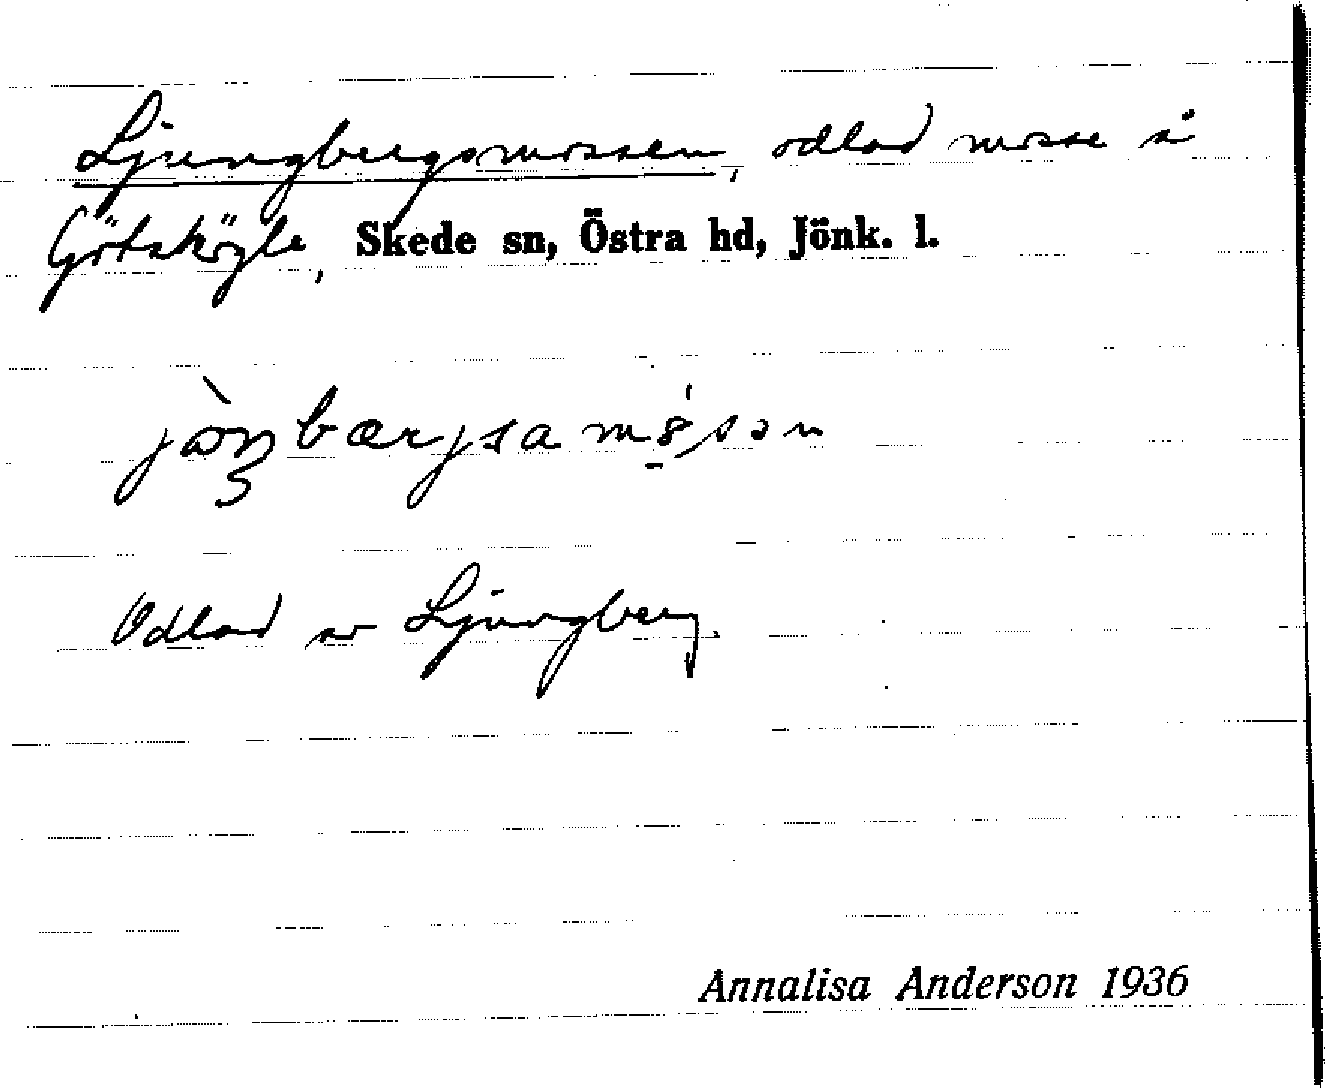 Ljungbergsmossen, odlad mosse å
Götskögle, Skede sn, Östra hd, Jönk. l.
Odlad av Ljungberg.
Annalisa Anderson 1936